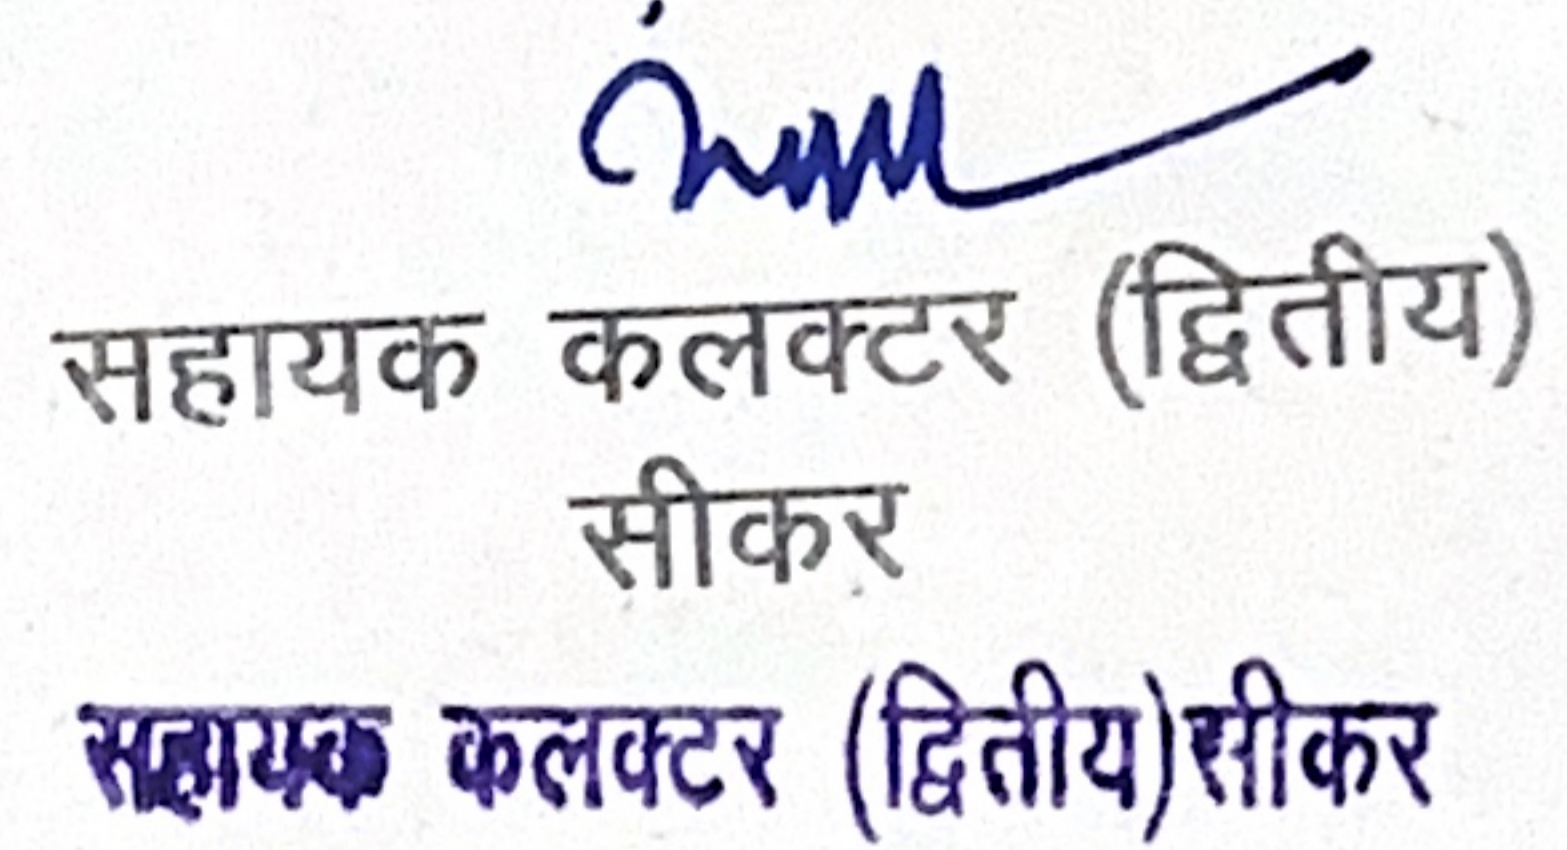 सहायक कलक्टर (द्वितीय)
सीकर
सहायक कलक्टर (द्वितीय)सीकर